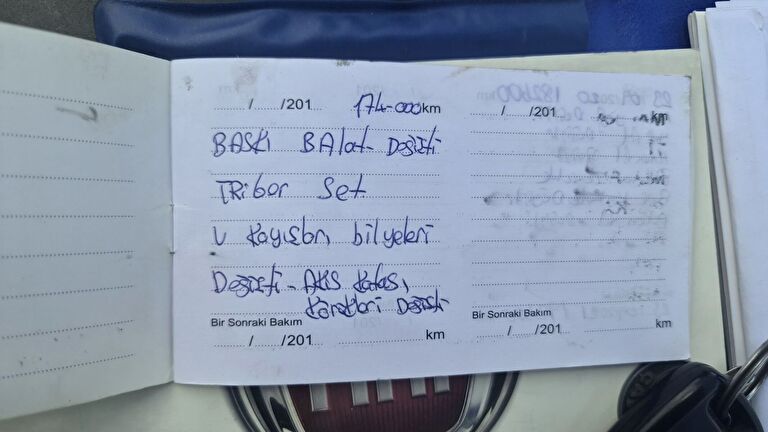 / /201 174.000 km
BASKI BAlat Değişti
TRiger Set
V Kayışları, bilyeleri
Değişti - AKS Kafası,
Körükleri Değişti
Bir Sonraki Bakım
/ /201 km
/ /201 km
Bir Sonraki Bakım
/ /201 km